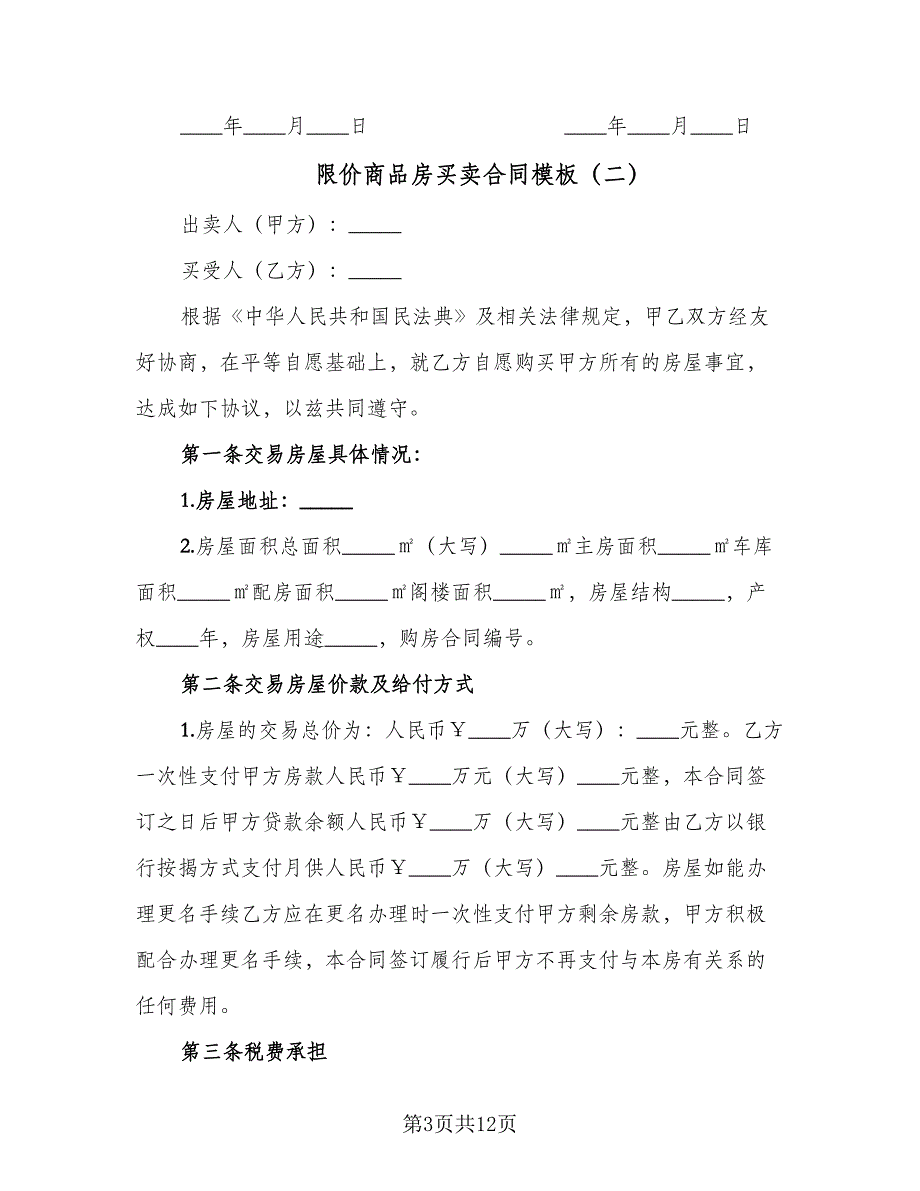 ____年____月____日 ____年____月____日
限价商品房买卖合同模板（二）
出卖人（甲方）：_____
买受人（乙方）：_____
根据《中华人民共和国民法典》及相关法律规定，甲乙双方经友
好协商，在平等自愿基础上，就乙方自愿购买甲方所有的房屋事宜，
达成如下协议，以兹共同遵守。
第一条交易房屋具体情况：
1.房屋地址：_____
2.房屋面积总面积_____㎡（大写）_____㎡主房面积_____㎡车库
面积_____㎡配房面积_____㎡阁楼面积_____㎡，房屋结构_____，产
权____年，房屋用途_____，购房合同编号。
第二条交易房屋价款及给付方式
1.房屋的交易总价为：人民币￥____万（大写）：____元整。乙方
一次性支付甲方房款人民币￥____万元（大写）____元整，本合同签
订之日后甲方贷款余额人民币￥____万（大写）____元整由乙方以银
行按揭方式支付月供人民币￥____万（大写）____元整。房屋如能办
理更名手续乙方应在更名办理时一次性支付甲方剩余房款，甲方积极
配合办理更名手续，本合同签订履行后甲方不再支付与本房有关系的
任何费用。
第三条税费承担
第3页共12页